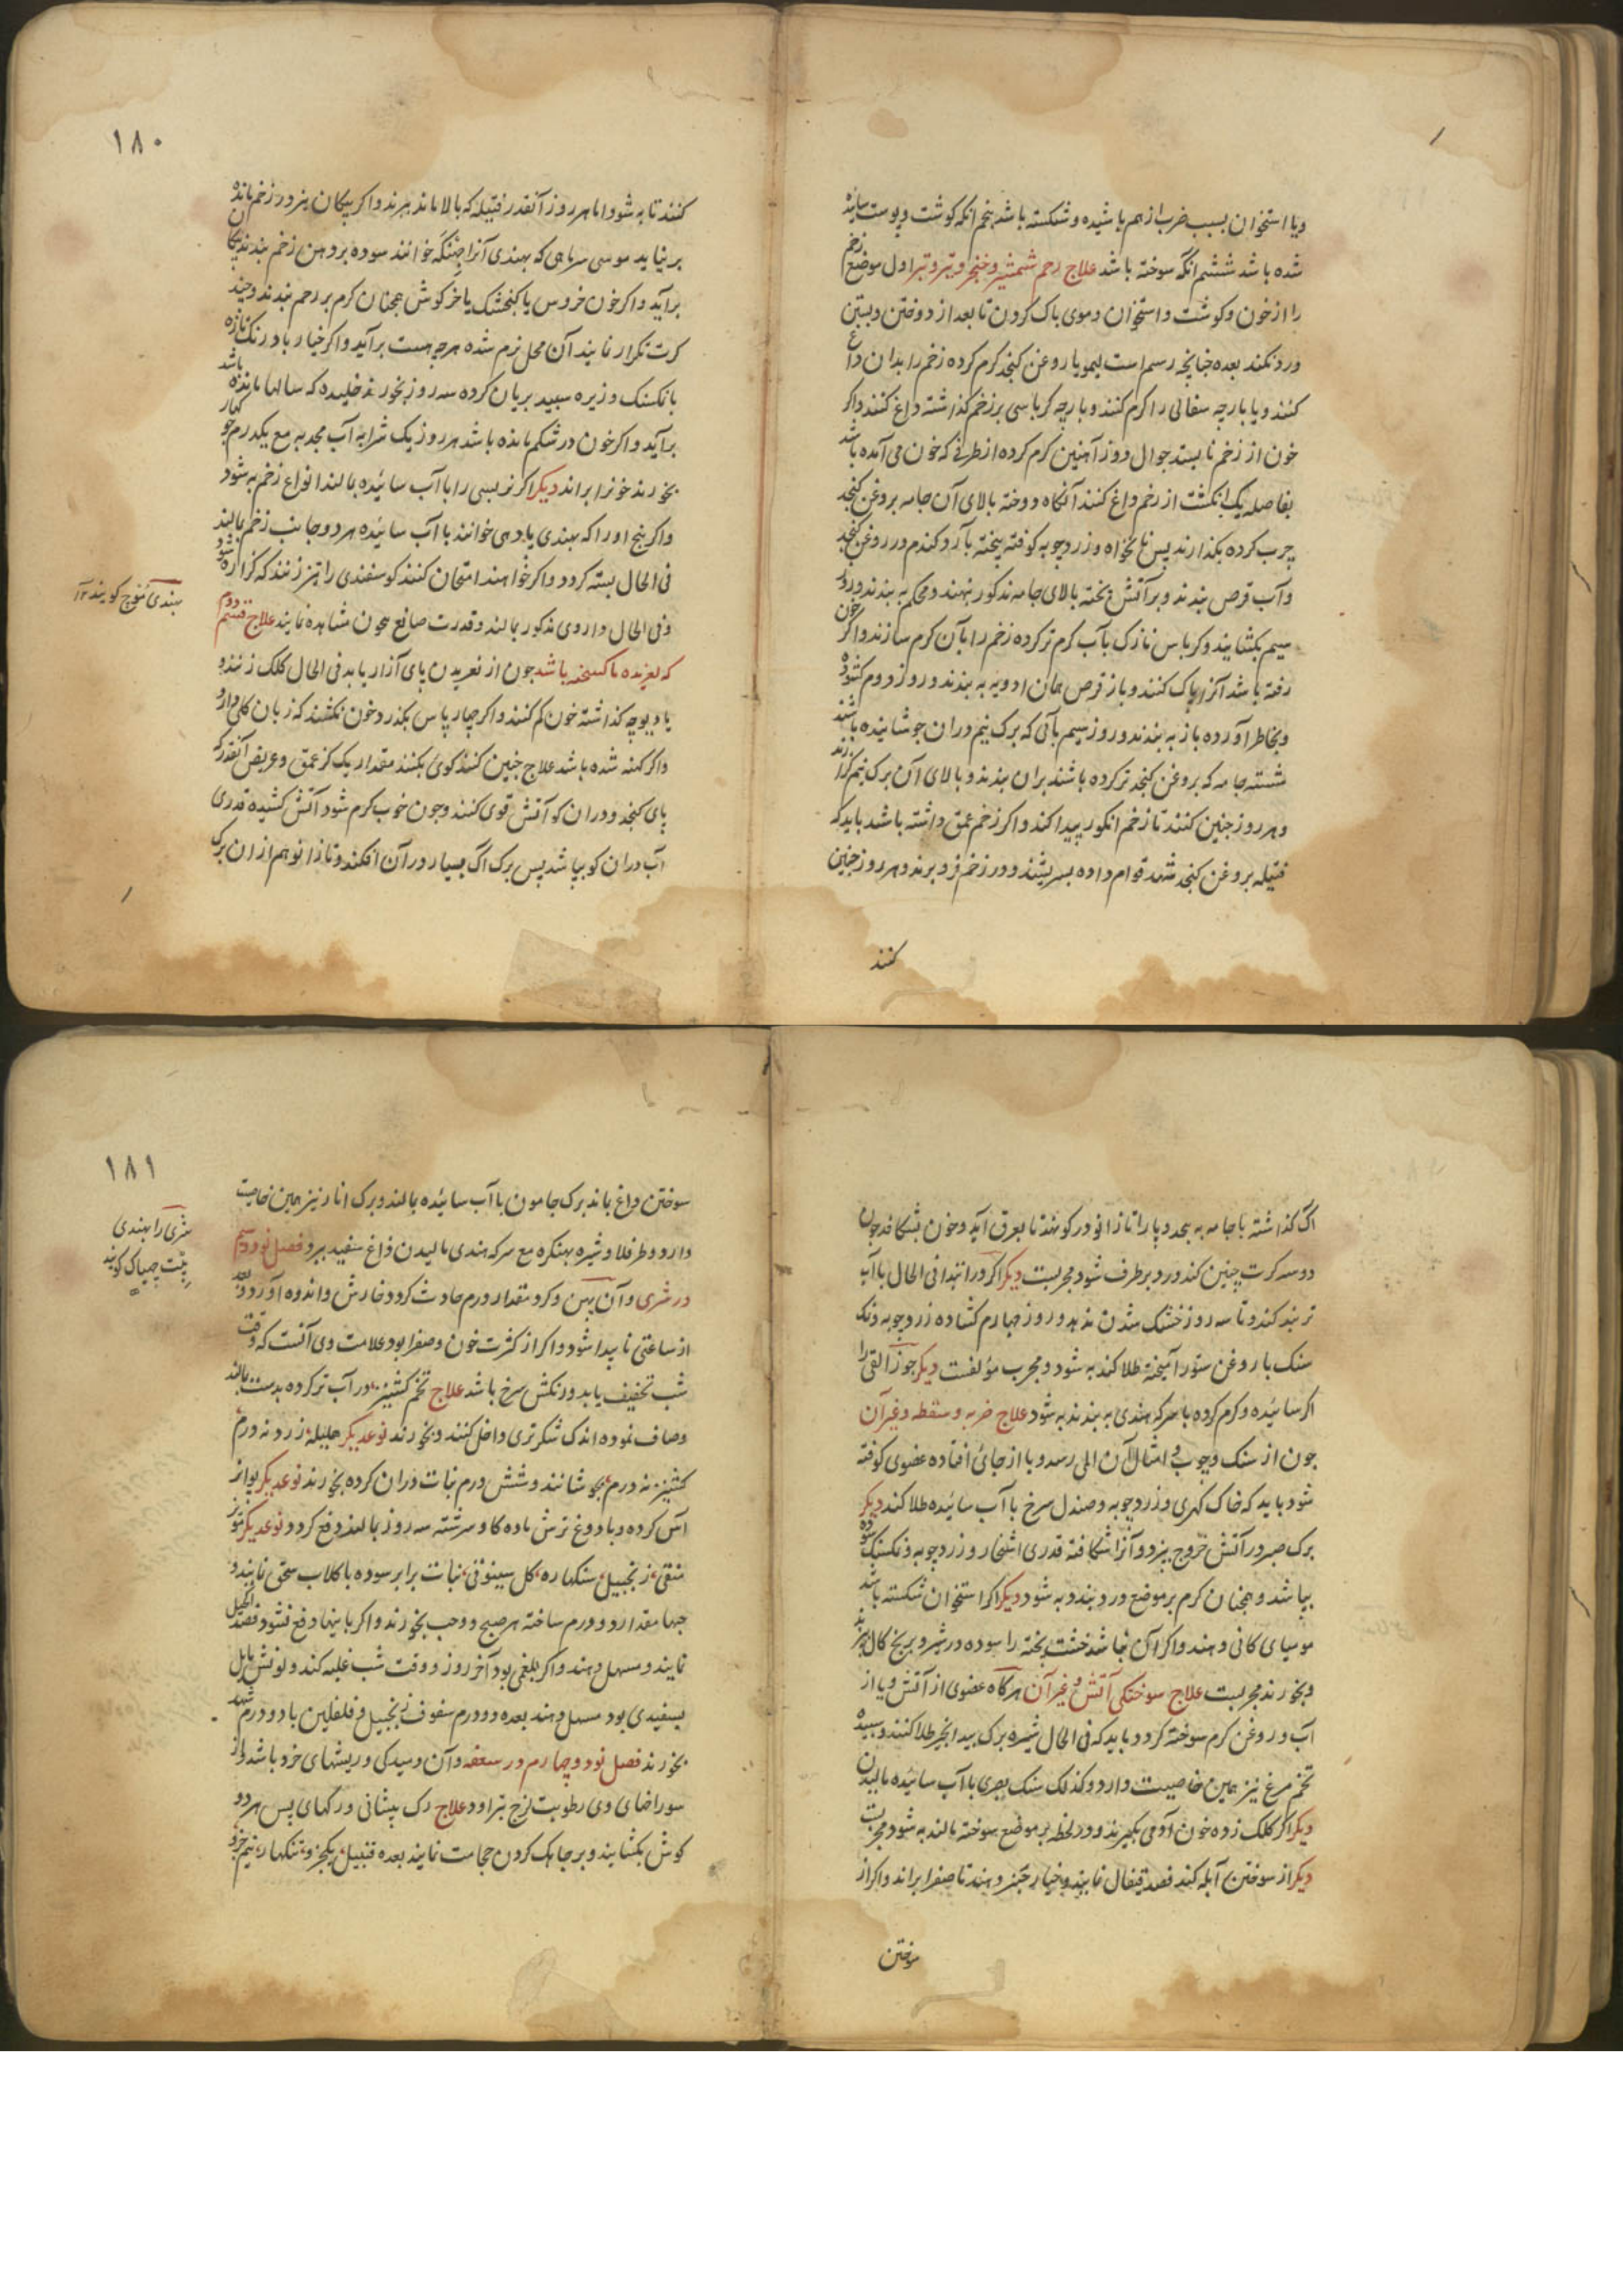 ویا استخوان بسبب ضرب از هم پاشیده و شکسته باشد پنجم انکه کوشت و پوست سائیده
شده باشد ششم انکه سوخته باشد علاج زخم شمشیر و خنجر و تیر و تبر اول موضع زخم
را از خون و کوشت و استخوان و موی پاک کردن تا بعد از دوختن و بستن
درد نکند بعده چنانچه رسم است لیمو یا روغن کنجد کرم کرده زخم را بدان داغ
کنند و یا پارچه سفالی را کرم کنند و پارچه کرباسی بر زخم کذاشته داغ کنند و اکر
خون از زخم نایستد جوال دوز آهنین کرم کرده از طرفی که خون می آمده باشد
بفاصله یک انکشت از زخم داغ کنند آنکاه دوخته بالای آن جامه بروغن کنجد
چرب کرده بکذارند پس نانخواه و زردچوبه کوفته بیخته با آرد کندم و روغن کنجد
و آب قرص بندند و بر آتش پخته بالای جامه مذکور نهند و محکم به بندند و روز
سیم بکشایند و کرباس نازک بآب کرم تر کرده زخم را بآن کرم سازند و اکر خون
رفته باشد آنرا پاک کنند و باز قرص همان ادویه به بندند و روز دوم کشوده
و بخاطر آورده باز به بندند و روز سیم بآبی که برک نیم دران جوشانیده باشند
شسته جامه که بروغن کنجد تر کرده باشند بران بندند و بالای آن برک نیم کذارند
و هر روز چنین کنند تا زخم انکور پیدا کند و اکر زخم عمق داشته باشد باید که
فتیله بروغن کنجد شهد قوام داده بسریشند و در زخم فرو برند و هر روز چنین
کنند
١٨٠
کنند تا به شود اما هر روز آنقدر فتیله که بالا ماند ببرند و اکر پیکان نیز در زخم مانده
بر نیاید موسی سر ماهی که بهندی آنرا جهنکه خوانند سوده بر دهن زخم بندند پیکان
برآید و اکر خون خروس یا کنجشک یا خرکوش همچنان کرم بر زخم بندند و چند
کرت تکرار نمایند آن محل نرم شده هرچه هست برآید و اکر خیار بادرنک تازه
بانکسنک و زیره سپید بریان کرده سه روز بخورند خلیده که سالها مانده باشد
برآید و اکر خون در شکم مانده باشد هر روز یک شرابه آب مجد به مع یکدرم جوکهار
بخورند خونرا براند دیکر اکر نربسی را با آب سائیده بمالند انواع زخم به شود
و اکر بیخ اورا که بهندی پادهی خوانند با آب سائیده هر دو جانب زخم بمالند
فی الحال بسته کردد و اکر خواهند امتحان کنند کوسفندی را تیز زنند که کزاره شود
و فی الحال داروی مذکور بمالند و قدرت صانع بیچون مشاهده نمایند علاج قسم دوم
که لغزیده یا کسیخته باشد چون از لغزیدن پای آزار یابد فی الحال کلک زنند و
یا دیوچه کذاشته خون کم کنند و اکر چهار پاس بکذرد خون نکشند که زیان کلی دارد
و اکر کهنه شده باشد علاج چنین کنند کوی بکنند مقدار یک کز عمق و عریض آنقدر که
پای کنجد و دران کو آتش قوی کنند و چون خوب کرم شود آتش کشیده قدری
آب دران کو بپاشد پس برک آک بسیار در آن افکند و تا زانو هم ازان برک
بهندی کوچ کویند ١٢
اک کذاشته با جامه به پیچد و پا را تا زانو در کو نهد تا بعرق آید و خون بشکافد چون
دو سه کرت چنین کند درد برطرف شود مجربست دیکر اکر در ابتدا فی الحال بآب
تر بند کند و تا سه روز خشک شدن ندهد و روز چهارم کشاده زردچوبه و نمک
سنک با روغن ستور آمیخته طلا کند به شود و مجرب مؤلفست دیکر جوز القی را
اکر سائیده و کرم کرده با سرکه هندی به بندند به شود علاج ضربه و سقطه و غیر آن
چون از سنک و چوب و امثال آن المی رسد و یا از جائی افتاده عضوی کوفته
شود باید که خاک کهری و زردچوبه و صندل سرخ با آب سائیده طلا کند دیکر
برک صبر در آتش خروج پزد و آنرا شکافته قدری اشخار و زردچوبه و نمکسنک سوده
بپاشد و همچنان کرم بر موضع درد بندد به شود دیکر اکر استخوان شکسته باشد
مومیای کانی دهند و اکر آن نباشد خشت پخته را سوده در شیر و برنج کال پزند
و بخورند مجربست علاج سوختکی آتش و غیر آن هرکاه عضوی از آتش و یا از
آب و روغن کرم سوخته کردد باید که فی الحال شیره برک بیدانجیر طلا کنند و سپیده
تخم مرغ نیز همین خاصیت دارد و کذلک سنک بصری با آب سائیده مالیدن
دیکر اکر کلک زده خون آدمی بکیرند و در لحظه بر موضع سوخته بمالند به شود مجربست
دیکر از سوختن آبله کند فصد قیفال نمایند و خیار چنبر دهند تا صفرا براند و اکر از
سوختن
١٨١
سوختن داغ باند برک جامون با آب سائیده بمالند و برک انار نیز همین خاصیت
دارد و طرفلا و شیره بهنکره مع سرکه هندی مالیدن داغ سفید ببرد فصل نود و سیم
در شری و آن پهن و کرد مقدار درم حادث کردد و خارش و اندوه آورد و بعد
از ساعتی ناپیدا شود و اکر از کثرت خون و صفرا بود علامت وی آنست که وقت
شب تخفیف یابد و رنکش سرخ باشد علاج تخم کشنیز در آب تر کرده بدست بمالند
و صاف نموده اندک شکر تری داخل کنند و بخورند نوعدیکر هلیله زرد نه درم
کشنیز نه درم بجوشانند و شش درم نبات دران کرده بخورند نوعدیکر یواز
آس کرده و با دوغ ترش ماده کاو سرشته سه روز بمالند دفع کردد نوعدیکر مویز
منقی زنجبیل سنکهاره کل سینوتی نبات برابر سوده با کلاب سحق نمایند و
حبها مقدار دو درم ساخته هر صبح دو حب بخورند و اکر باینها دفع نشود فصد اکحل
نمایند و مسهل دهند و اکر بلغمی بود آخر روز و وقت شب غلبه کند و لونش مایل
بسفیدی بود مسهل دهند بعده دو درم سفوف زنجبیل و فلفلین با دو درم شهد
بخورند فصل نود و چهارم در سعفه و آن دمیدکی و ریشهای خرد باشد و از
سوراخهای وی رطوبت لزج بتراود علاج رک پیشانی و رکهای پس هر دو
کوش بکشایند و بر جاهک کردن حجامت نمایند بعده قنبیل یکجز و تنکهار نیم جزو
شری را بهندی
پت چهپاکی کویند